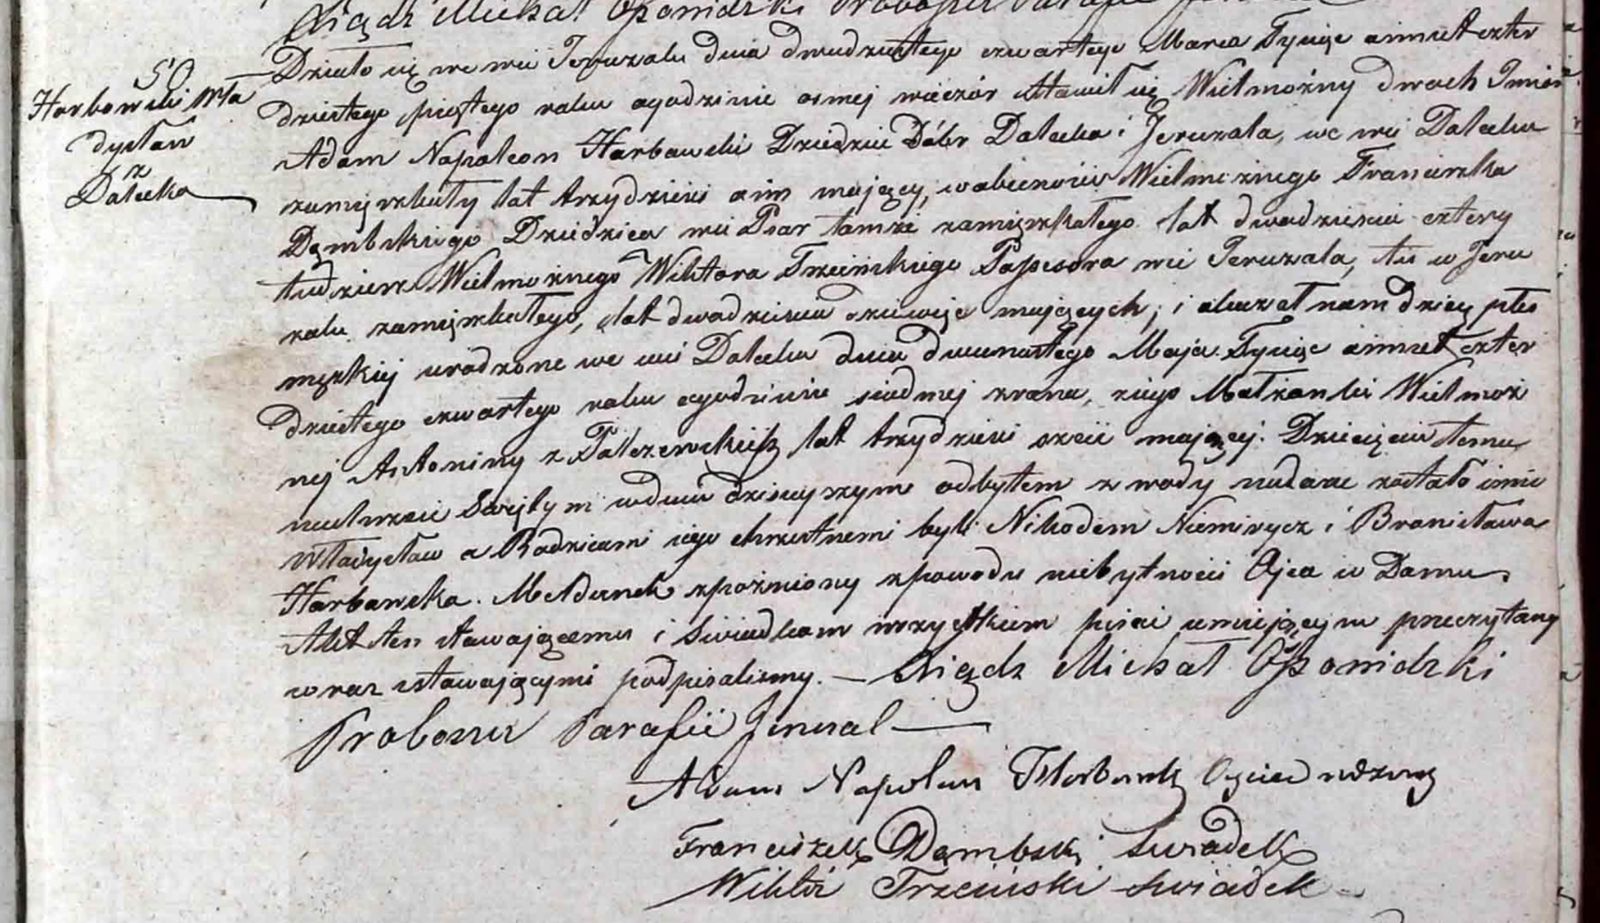 Ksiądz Michał Oponidzki Proboszcz Parafii
50
Harbowski Wła
dysław
z
Dalecka
Działo się we wsi Jeruzalu dnia dwudziestego czwartego Marca Tysiąc ośmset czter
dziestego piątego roku o godzinie osmej wieczór stawił się Wielmożny dwoch Imion
Adam Napoleon Harbowski Dziedzic Dóbr Dalecka i Jeruzala, we wsi Dalecku
zamięszkały lat trzydzieści ośm mający, w obecności Wielmożnego Franciszka
Dąmbskiego Dziedzica wsi Psar tamże zamięszkałego lat dwadzieścia cztery
tudzież Wielmożnego Wiktora Trzcińskiego Possesora wsi Jeruzala, tu w Jeru
zalu zamięszkałego, lat dwadzieścia mających; i okazał nam dziecię płci
męzkiej urodzone we wsi Dalecku dnia dwunastego Maja Tysiąc ośmset czter
dziestego czwartego roku o godzinie siódmej zrana, z iego Małżonki Wielmoż
nej Antoniny z lat trzydzieści mającej. Dziecięciu temu
na Chrzcie Świętym w dniu dzisieyszym odbytem z wody nadane zostało imie
Władysław a Rodzicami iego chrzestnemi byli Nikodem Niemirycz i Bronisława
Harbowska. Meldunek spóźniony z powodu niebytności Ojca w Domu.
Akt ten stawającemu i Świadkom wszystkiem pisać umiejącym przeczytany
wraz z stawającymi podpisaliśmy. — Ksiądz Michał Oponidzki
Proboszcz Parafii Jeruzal —
Adam Napoleon Harbowski Oyciec
Franciszek Dąmbski Swiadek
Wiktor Trzciński Swiadek